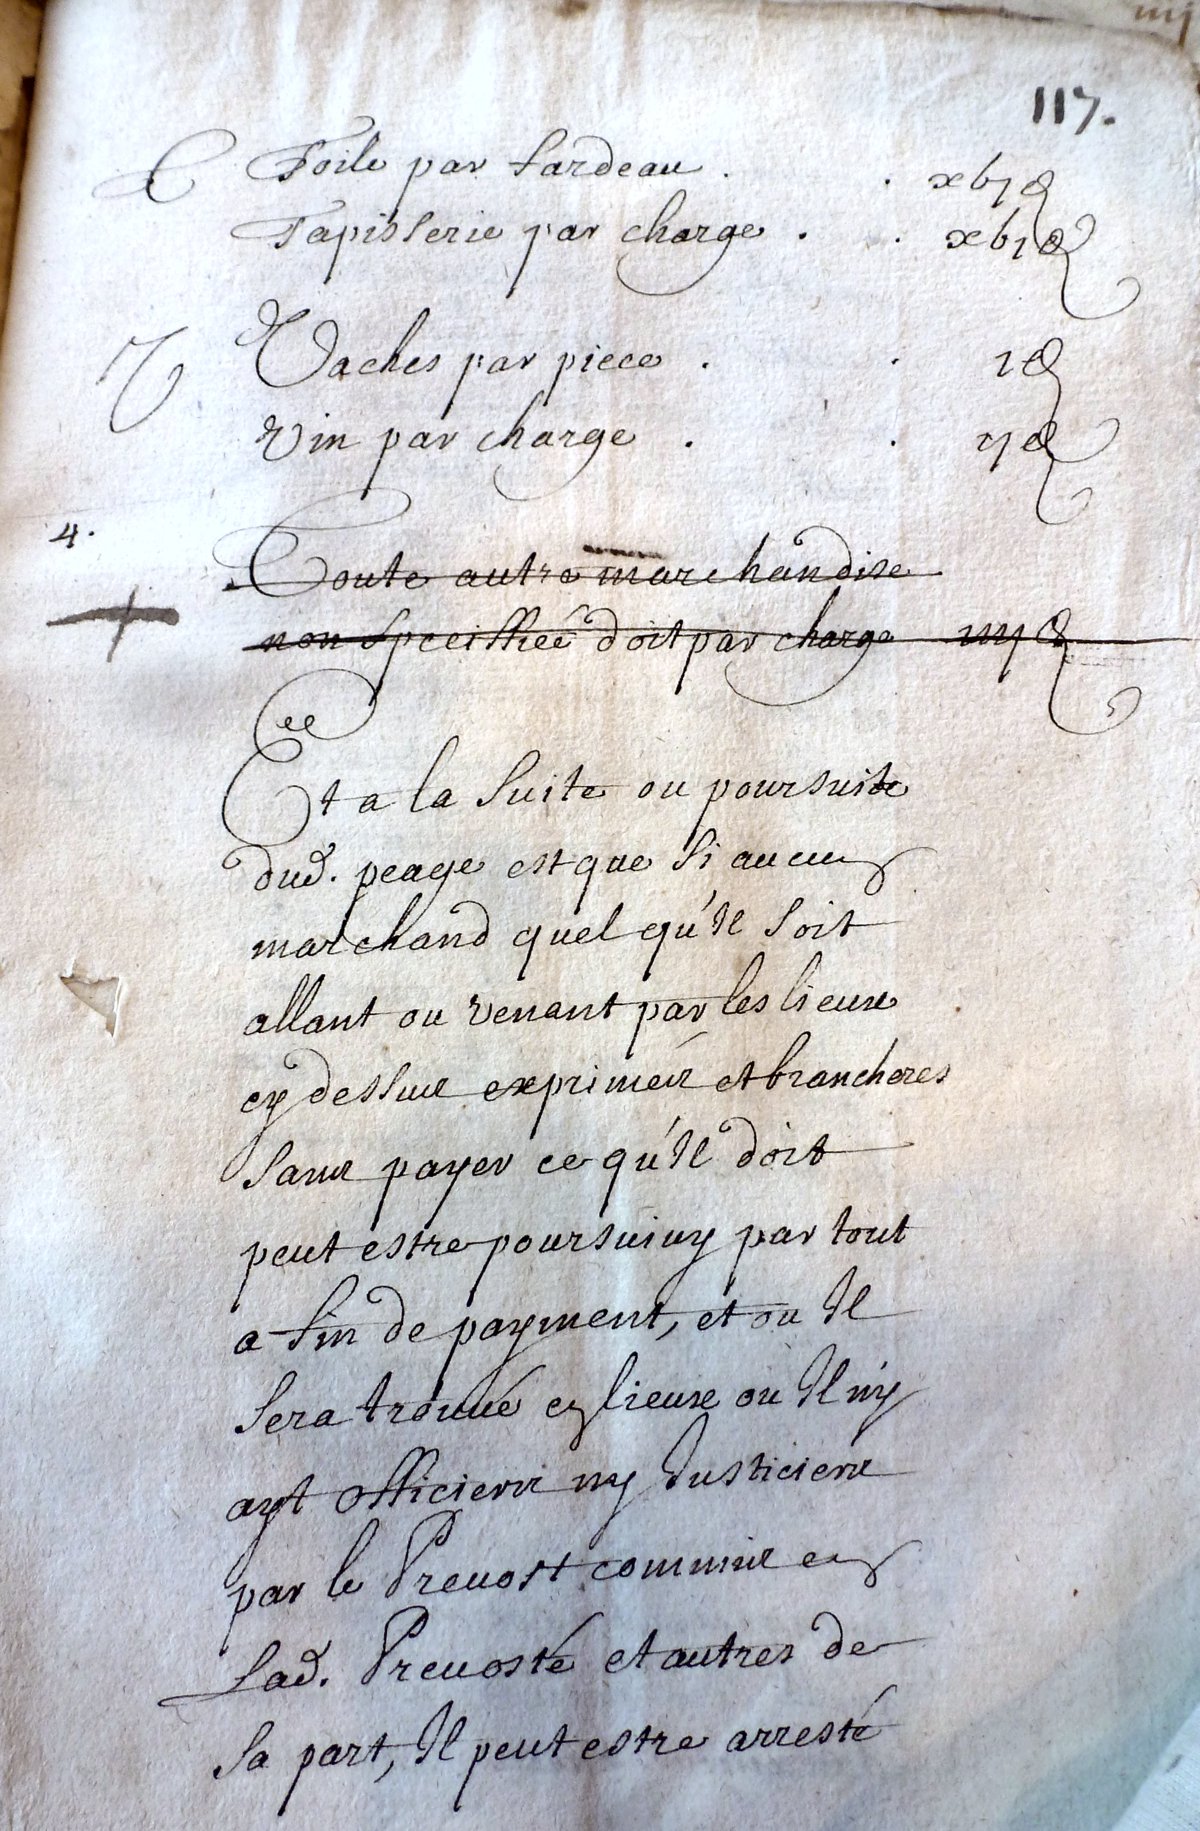 117.
T Toile par fardeau . . xbj d
Tapisserie par charge . . xbj d
V Vaches par piece . . j d
Vin par charge . . ij d
4.
Toute autre marchandise
non speciffiée doit par charge iiij d
Et a la suite ou poursuite
dud. peage est que si aucun
marchand quel qu'Il soit
allant ou venant par les lieux
cy dessus exprimés et brancheres
sans payer ce qu'Il doit
peut estre poursuivy par tout
a fin de payment, et ou Il
sera trouué en lieux ou Il n'y
ayt officiers ny Justiciers
par le Preuost commis en
lad. Preuosté et autres de
sa part, Il peut estre arresté